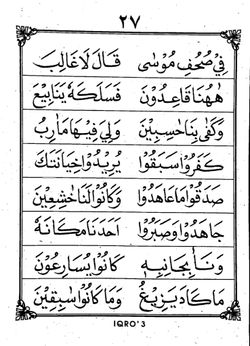 ٢٧
فِيْ صُحُفِ مُوْسٰى قَالَ لَا غَالِبَ
هٰهُنَا قَاعِدُوْنَ فَسَلَكَهٗ يَنَابِيْعَ
وَكَفٰى بِنَا حَسِبِيْنَ وَلِيَ فِيْهَا مَاٰرِبُ
كَفَرُوْا سَبَقُوْا يُرِيْدُوْا خِيَانَتَكَ
صَدَقُوْا مَا عَاهَدُوْا وَكَانُوْا لَنَا خٰشِعِيْنَ
جَاهَدُوْا وَصَبَرُوْا اَحَدَنَا مَكَانَهٗ
وَنَاٰ بِجَانِبِهٖ كَانُوْا يُسَارِعُوْنَ
مَا كَادَ يَزِيْغُ وَمَا كَانُوْا سٰبِقِيْنَ
IQRO'3